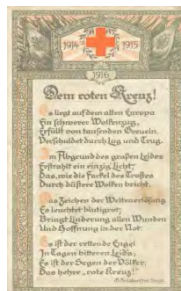 1914 1915
1916
Dem roten Kreuz!
Es liegt auf dem alten Europa
Ein schwerer Wolkenzug,
Erfüllt von tausenden
Verschuldet durch Lug und Trug.
Am Abgrund des großen Leides
Erstrahlt ein einzig Licht:
Das, wie die Fackel des Trostes
Durch düstere Wolken bricht.
Das Zeichen der Welterlösung
Es leuchtet blutigrot:
Bringt Linderung allen Wunden
Und Hoffnung in der Not:
Es ist der rettende Engel
In Tagen bitteren Leids;
Es ist der Segen der Völker,
Das hehre „rote Kreuz!"